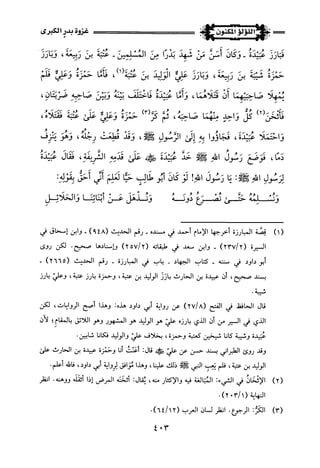 اللؤلؤ المكنون
غزوة بدر الكبرى
فَبَارَزَ عُبَيْدَةُ - وَكَانَ أَسَنَّ مَنْ شَهِدَ بَدْرًا مِنَ المُسْلِمِينَ - عُتْبَةَ بنَ رَبِيعَةَ، وَبَارَزَ
حَمْزَةُ شَيْبَةَ بنَ رَبِيعَةَ، وَبَارَزَ عَلِيٌّ الوَلِيدَ بنَ عُتْبَةَ(١)، فَأَمَّا حَمْزَةُ وَعَلِيٌّ فَلَمْ
يُمْهِلَا صَاحِبَيْهِمَا أَنْ قَتَلَاهُمَا، وَأَمَّا عُبَيْدَةُ فَاخْتَلَفَ بَيْنَهُ وَبَيْنَ صَاحِبِهِ ضَرْبَتَانِ،
فَأَثْخَنَ(٢) كُلُّ وَاحِدٍ مِنْهُمَا صَاحِبَهُ، ثُمَّ كَرَّ(٣) حَمْزَةُ وَعَلِيٌّ عَلَى عُتْبَةَ فَقَتَلَاهُ،
وَاحْتَمَلَا عُبَيْدَةَ، فَجَاؤُوا بِهِ إِلَى الرَّسُولِ ﷺ، وَقَدْ قُطِعَتْ رِجْلُهُ، وَهُوَ يَنْزِفُ
دَمًا، فَوَضَعَ رَسُولُ اللهِ ﷺ خَدَّ عُبَيْدَةَ ﷺ عَلَى قَدَمِهِ الشَّرِيفَةِ، فَقَالَ عُبَيْدَةُ
لِرَسُولِ اللهِ ﷺ: يَا رَسُولَ اللهِ! لَوْ كَانَ أَبُو طَالِبٍ حَيًّا لَعَلِمَ أَنِّي أَحَقُّ بِقَوْلِهِ:
وَنُسْلِمُهُ حَتَّى نُصْرَعَ دُونَهُ وَنُذْهَلَ عَنْ أَبْنَائِنَا وَالحَلَائِلِ
(١) قِصَّة المبارزة أخرجها الإمام أحمد في مسنده - رقم الحديث (٩٤٨) - وابن إسحاق في
السيرة (٢٣٧/٢) - وابن سعد في طبقاته (٢٥٧/٢) وإسنادها صحيح. لكن روى
أبو داود في سننه - كتاب الجهاد - باب في المبارزة - رقم الحديث (٢٦٦٥) -
بسند صحيح، أن عبيدة بن الحارث بارز الوليد بن عتبة، وحمزة بارز عتبة، وعليٌّ بارز
شيبة.
قال الحافظ في الفتح (٢٧/٨) عن رواية أبي داود هذه: وهذا أصح الروايات، لكن
الذي في السير من أن الذي بارزه عليٌّ هو الوليد هو المشهور وهو اللائق بالمقام؛ لأن
عُبيدة وشيبة كانا شيخين كعتبة وحمزة، بخلاف عليٍّ والوليد فكانا شابين.
وقد روى الطبراني بسند حسن عن عليٍّ ﷺ قال: أعَنْتُ أنا وحَمْزة عبيدة بن الحارث على
الوليد بن عتبة، فلم يَعِبِ النبي ﷺ ذلك علينا، وهذا مُوَافق لرواية أبي داود، فالله أعلم.
(٢) الإثْخَانُ في الشيء: المُبَالغة فيه والإكثار منه، يُقال: أثخَنَه المرض إذا أثقَلَه ووهنه. انظر
النهاية (٢٠٣/١).
(٣) الكَرُّ: الرجوع. انظر لسان العرب (٦٤/١٢).
٤٠٣